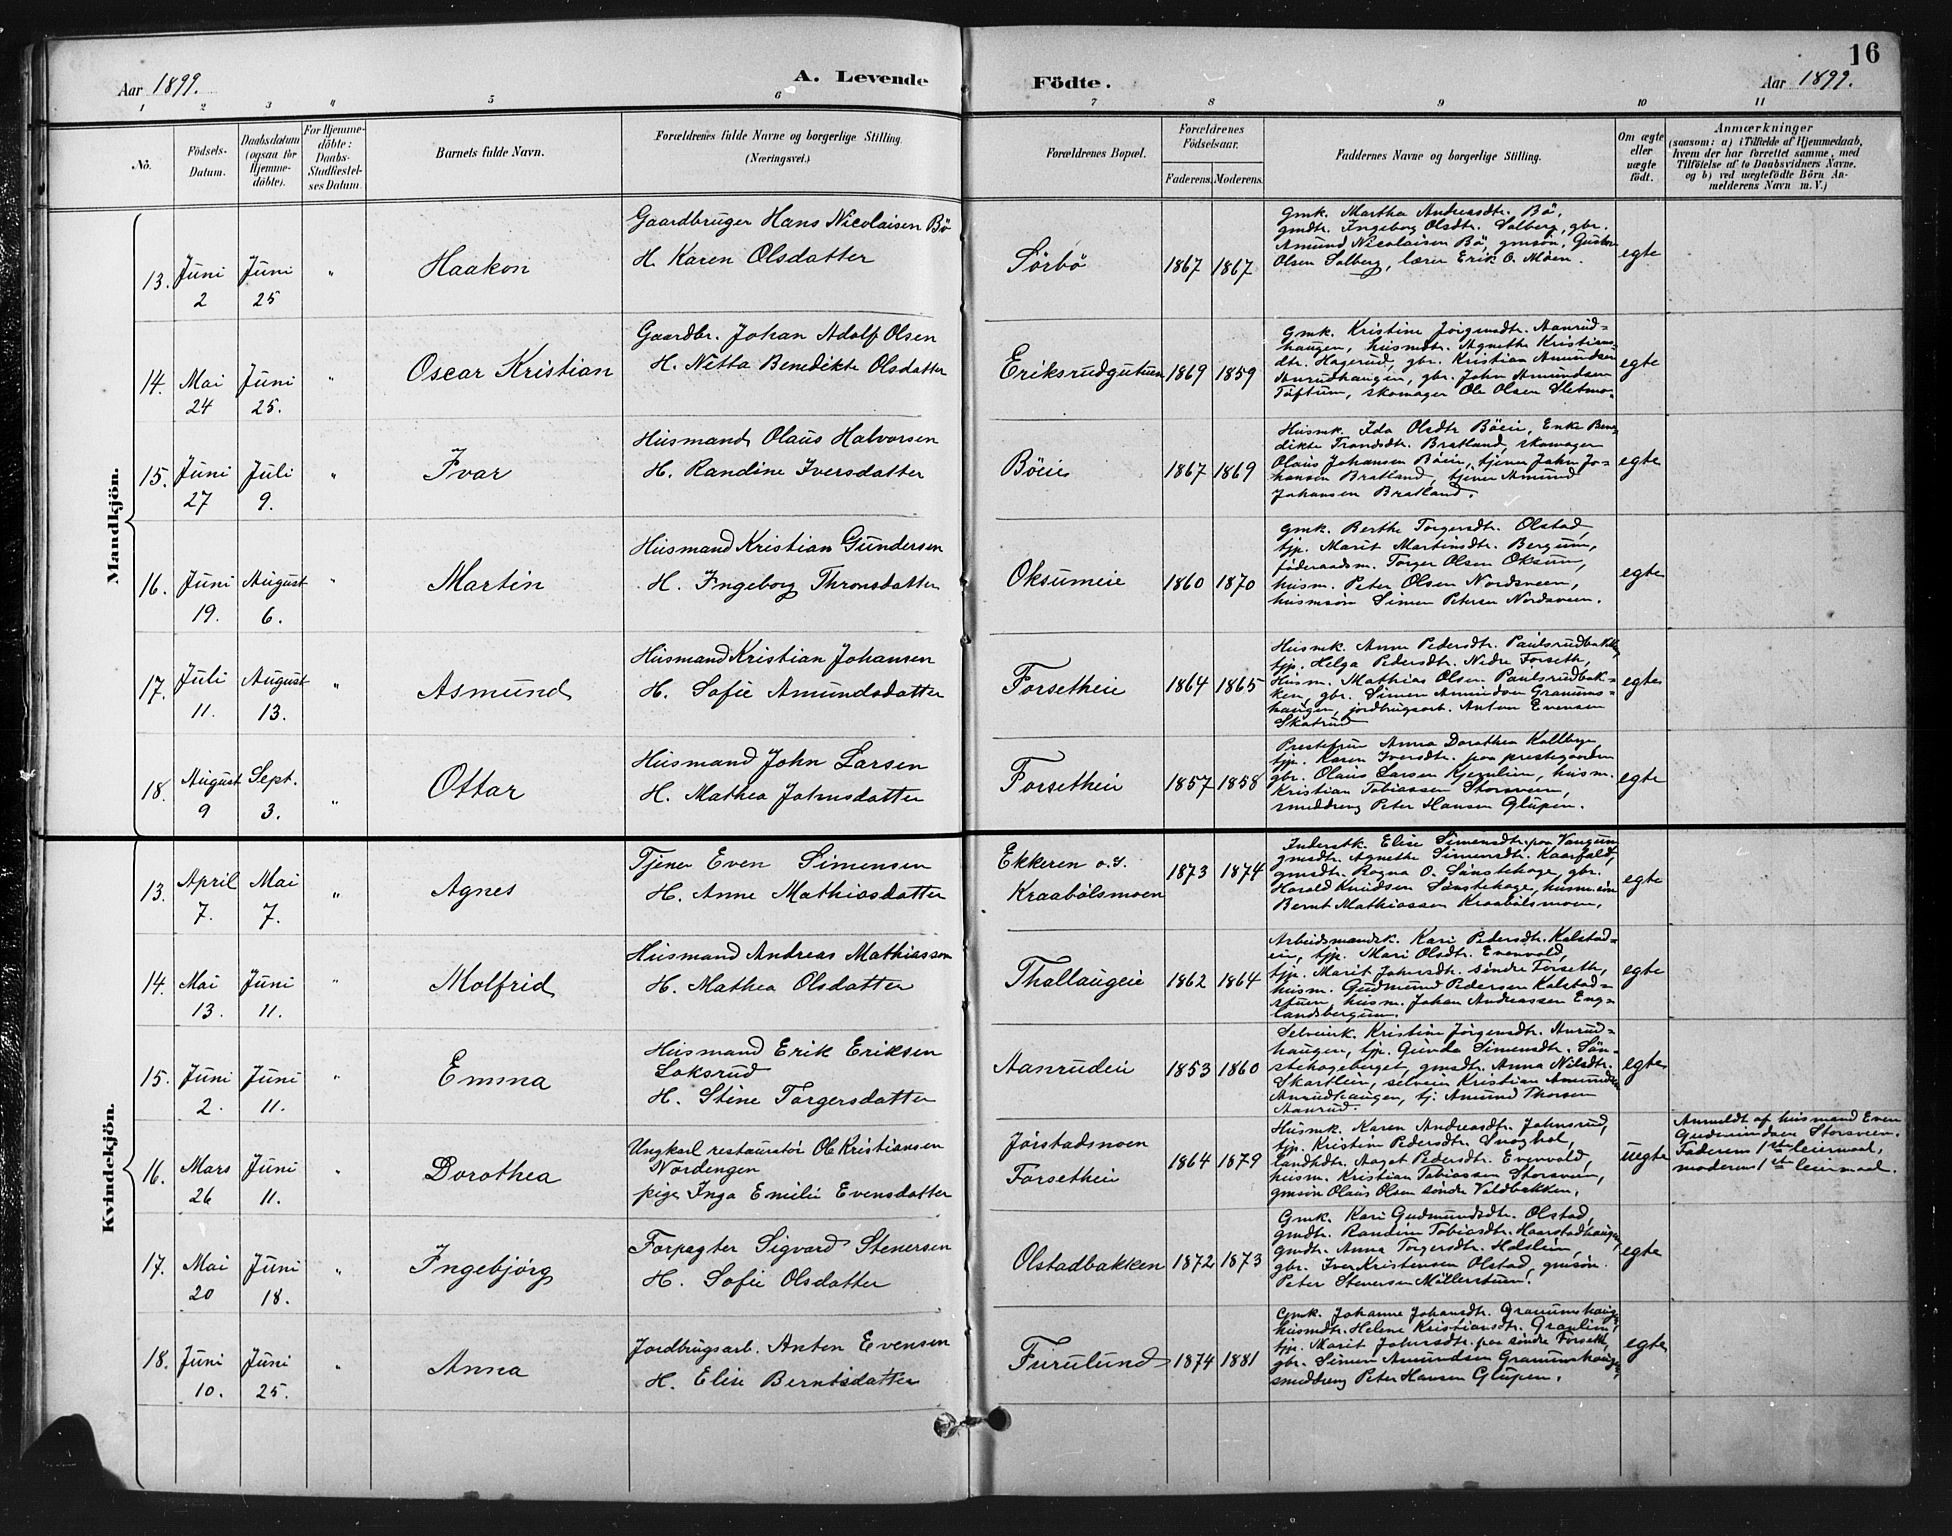 Aar 1899.
A. Levende
Födte.
Aar 1899.
16
1 2 3 " 5 6 7 8 9 10 11
No.
Födsels-
Datum.
Daabsdatum
(ogsaa for
Hjemme-
döbte).
For Hjemme-
döbte:
Daabs-
Stadfæstel-
ses Datum.
Barnets fulde Navn.
Forældrenes fulde Navne og borgerlige Stilling
(Næringsvei.)
Forældrenes Bopæl.
Forældrenes
Födselsaar.
Faderens. Moderens.
Faddernes Navne og borgerlige Stilling.
Om ægte
eller
uægte
födt.
Anmærkninger
(saasom: a) i Tilfælde af Hjemmedaab,
hvem der har forrettet samme, med
Tilföielse af to Daabsvidners Navne.
og b) ved uægtefödte Börn An-
melderens Navn m. V.)
Mandkjön.
13. Juni 2
Juni 25
"
Haakon
Gaardbruger Hans Nicolaisen Bö
H. Karen Olsdatter
Sörbö
1867 1867
Gmk. Martha Andreasdtr. Bö,
gmdtr. Ingeborg Olsdtr. Solberg, gbr.
Amund Nicolaisen Bö, gmsön. Gustav
Olsen Solberg, lærer Erik O. Möen.
egte
14. Mai 24
Juni 25.
"
Oscar Kristian
Gaardbr. Johan Adolf Olsen
H. Netta Benedikte Olsdatter
Eriksrudgutuen
1869 1859
Gmk. Kristine Jörgensdtr. Aanrud-
haugen, husmdtr. Agnethe Kristians-
dtr. Hagerud, gbr. Kristian Amundsen
Anrudhaugen, gbr. John Amundsen
Töftum, skomager Ole Olsen Sletmo.
egte
15. Juni 27
Juli 9.
"
Ivar
Husmand Olaus Halvorsen
H. Randine Iversdatter
Böeie
1867 1869
Husmk. Ida Olsdtr Böeie, Enke Bene-
dikte Trondsdtr. Bratland, skomager
Olaus Johansen Böeie, tjener John Jo-
hansen Bratland, tjener Amund
Johansen Bratland.
egte
16. Juni 19.
August 6.
"
Martin
Husmand Kristian Gundersen
H. Ingeborg Thronsdatter
Oksumeie
1860 1870
Gmk. Berthe Torgersdtr. Olstad,
tjp. Marit Martinsdtr. Bergum,
föderaadsm. Torger Olsen Oksum,
husm. Peter Olsen Nordsveen,
husmsön Simen Petersen Nordsveen.
egte
17. Juli 11.
August 13.
"
Asmund
Husmand Kristian Johansen
H. Sofie Amundsdatter
Forsetheie
1864 1865
Husmk. Anne Pedersdtr. Paulsrudbakken,
tjp. Helga Pedersdtr. Nedre Forseth,
Husm. Mathias Olsen Paulsrudbak-
ken, gbr. Simen Amundsen Granums-
haugen, jordbrugsarb. Anton Evensen
Skatrud
egte
18. August 9
Sept. 3.
"
Ottar
Husmand John Larsen
H. Mathea Johnsdatter
Forsetheie
1857 1858
Prestefrue Anna Dorothea Kallberg
tjp. Karen Iversdtr. paa prestegaarden
gbr. Olaus Larsen Kjernlien, husm.
Kristian Tobiassen Storsveen,
smeddreng Peter Hansen Glupen.
egte
Kvindekjön.
13. April 7.
Mai 7.
"
Agnes
Tjener Even Simensen
H. Anne Mathiasdatter
Ekkeren o.s.
Kraabölsmoen
1873 1874
Inderstk. Elise Simensdtr. paa Vangum
gmdtr. Agnethe Simensdtr. Kaarfald,
gmdtr. Ragna O. Sönstehage, gbr.
Harald Knudsen Sönstehage, husm.sön
Bernt Mathiassen Kraabölsmoen.
egte
14. Mai 13.
Juni 11.
"
Molfrid
Husmand Andreas Mathiassen
H. Mathea Olsdatter
Thallaugeie
1862 1864
Arbeidsmandsk. Kari Pedersdtr. Kalstad-
eie, tjp. Mari Olsdtr. Evenvold,
tjp. Marit Johnsdtr. söndre Forseth,
husm. Gudmund Pedersen Kalstad-
stuen, husm. Johan Andreassen Eng-
landsbergum.
egte
15. Juni 2.
Juni 11.
"
Emma
Husmand Erik Eriksen
Loksrud
H. Stine Torgersdatter
Aanrudeie
1853 1860
Selveierk. Kristine Jörgensdtr. Aanrud-
haugen, tjp. Gunda Simensdtr. Sön-
stehageberget, gmsdtr. Anna Nilsdtr.
Skartlien, selveier Kristian Amundsen
Anrudhaugen, tj. Amund Thorsen
Aanrud.
egte
16. Mars 26
Juni 11.
"
Dorothea
Ungkarl restauratör Ole Kristiansen
Nordengen
pige Inga Emilie Evensdatter
Jörstadsmoen
Forsetheie
1864 1879
Husmk. Karen Andreasdtr Johnsrud,
tjp. Kristine Pedersdtr. Snogbol,
landhdtr. Aagot Pedersdtr. Evenvold,
husm. Kristian Tobiassen Storsveen,
gmsön Olaus Olsen söndre Voldbakken.
uegte
Anmeldt af husmand Even
Gudmundsen Storsveen.
Faderens 1ste leiermaal,
moderens 1ste leiermaal.
17. Mai 20
Juni 18.
"
Ingebjörg
Forpagter Sigvard Stenersen
H. Sofie Olsdatter
Olstadbakken
1872 1873
Gmk. Kari Gudmundsdtr. Olstad,
gmdtr. Randine Tobiasdtr. Haarstadhaugen,
gmdtr. Anna Torgersdtr. Holslien,
gbr. Iver Kristensen Olstad, gmsön.
Peter Stenersen Möllerstuen.
egte
18. Juni 10.
Juni 25.
"
Anna
Jordbrugsarb. Anton Evensen
H. Elise Berntsdatter
Furulund
1874 1881
Gmk. Johanne Johansdtr. Granumshaugen,
husmdtr. Helene Kristiansdtr. Granlien,
tjp. Marit Johnsdtr. paa söndre Forseth,
gbr. Simen Amundsen Granumshaugen,
smeddreng Peter Hansen Glupen.
egte